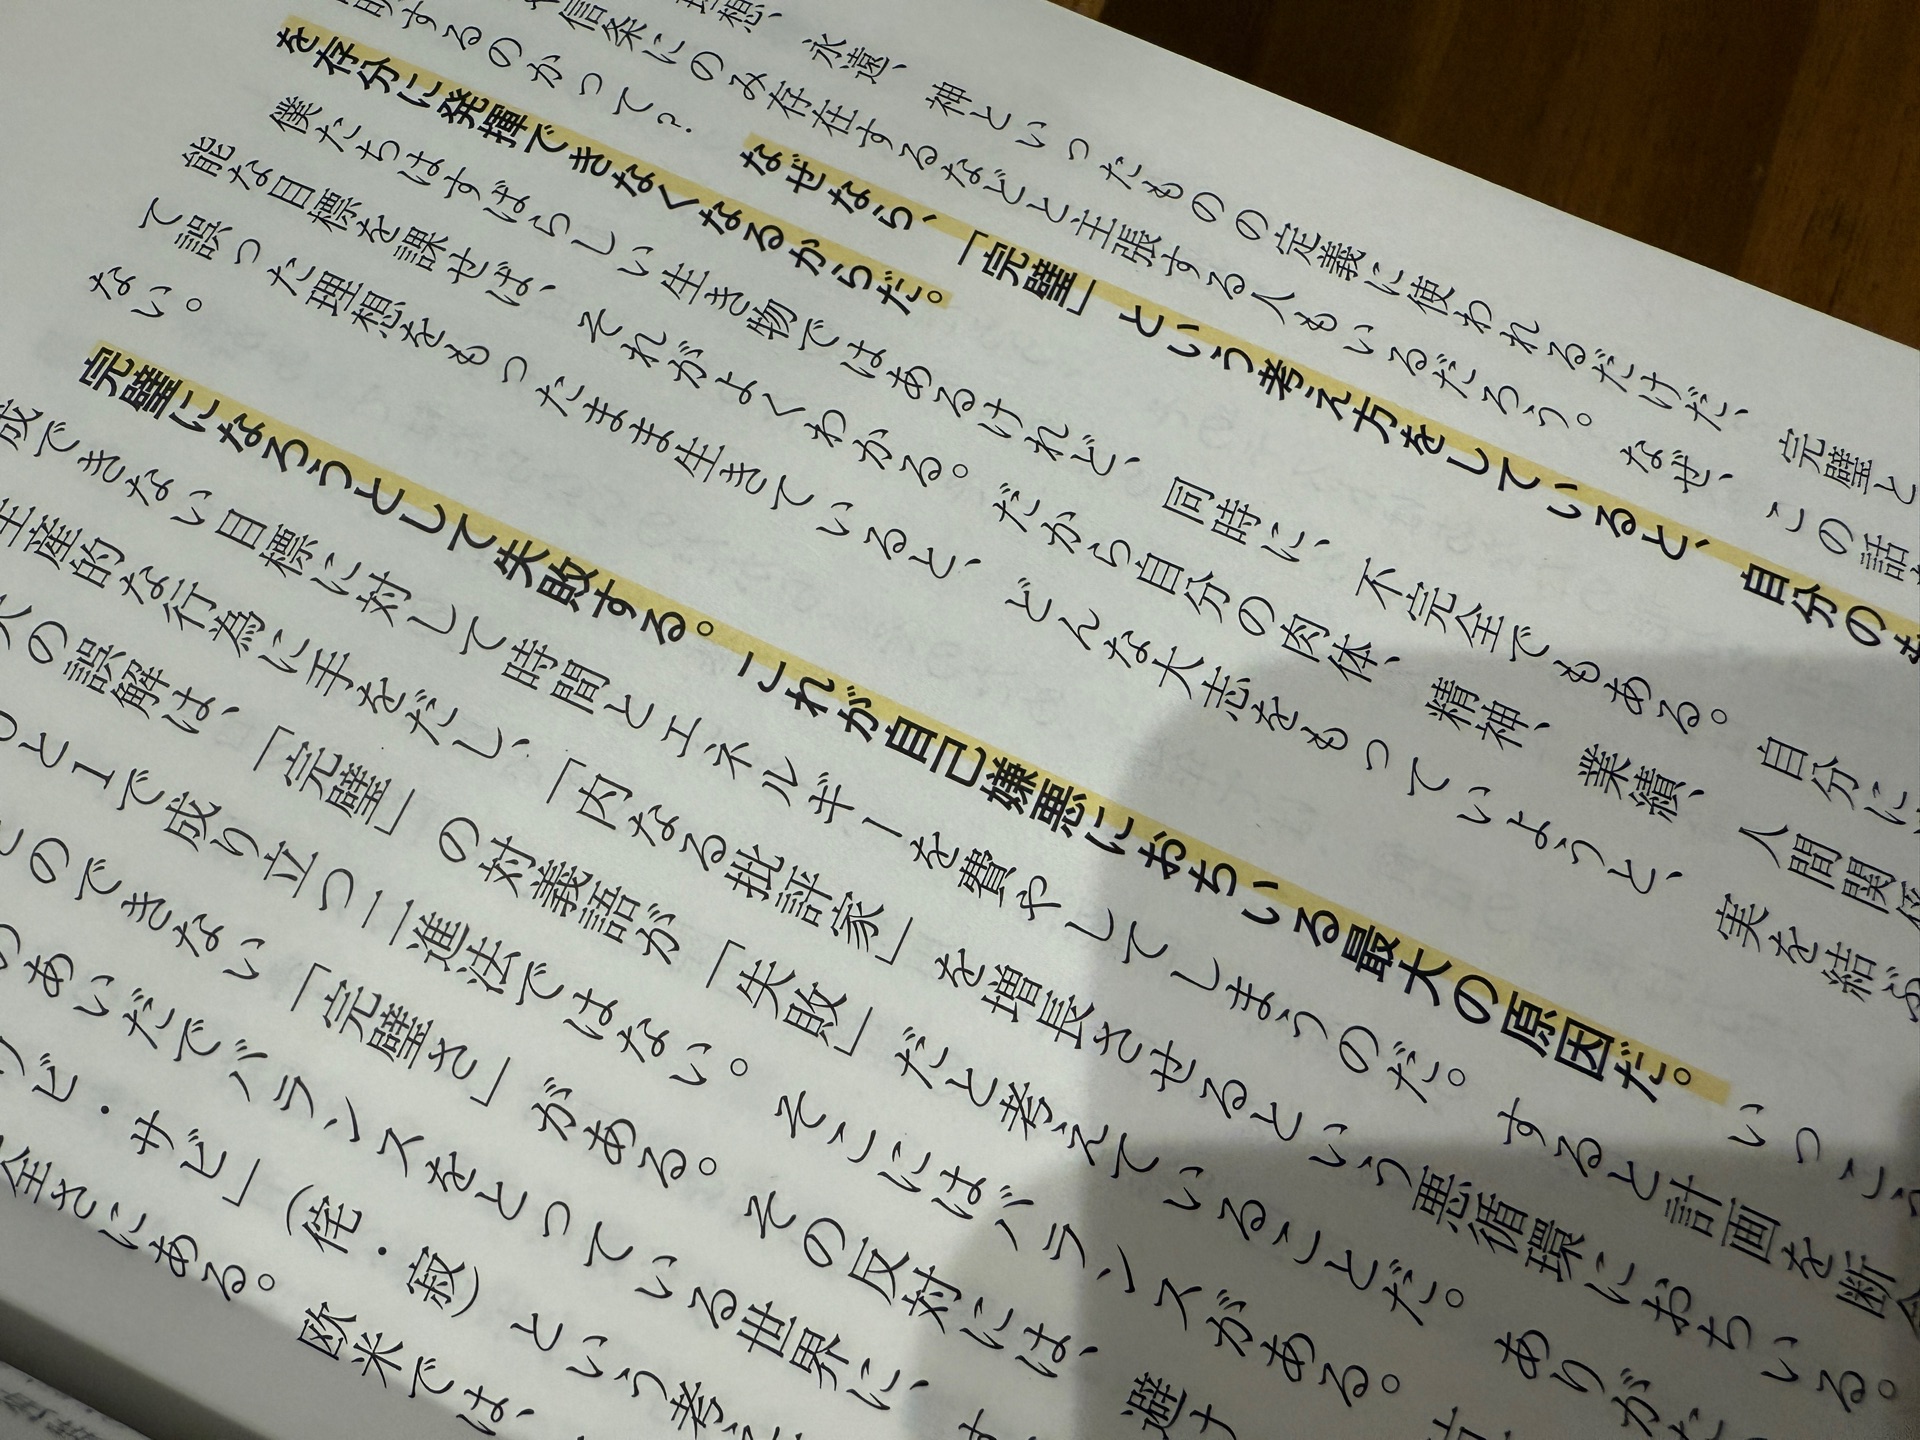 理想、永遠、神といったものの定義に使われるだけだ、完璧と
信条にのみ存在するなどと主張する人もいるだろう。なぜ、この話
するのかって？　なぜなら、「完璧」という考え方をしていると、自分の
を存分に発揮できなくなるからだ。
僕たちはすばらしい生き物ではあるけれど、同時に、不完全でもある。自分に
能な目標を課せば、それがよくわかる。だから自分の肉体、精神、業績、人間関係
て誤った理想をもったまま生きていると、どんな大志をもっていようと、実を結ぶ
ない。
完璧になろうとして失敗する。これが自己嫌悪におちいる最大の原因だ。いっこう
成できない目標に対して時間とエネルギーを費やしてしまうのだ。すると計画を断念
生産的な行為に手をだし、「内なる批評家」を増長させるという悪循環におちいる。
の誤解は、「完璧」の対義語が「失敗」だと考えていることだ。ありがた
と1で成り立つ二進法ではない。そこにはバランスがある。
とのできない「完璧さ」がある。その反対には、避
のあいだでバランスをとっている世界に、
ビ・サビ」（侘・寂）という考え
全さにある。欧米では、